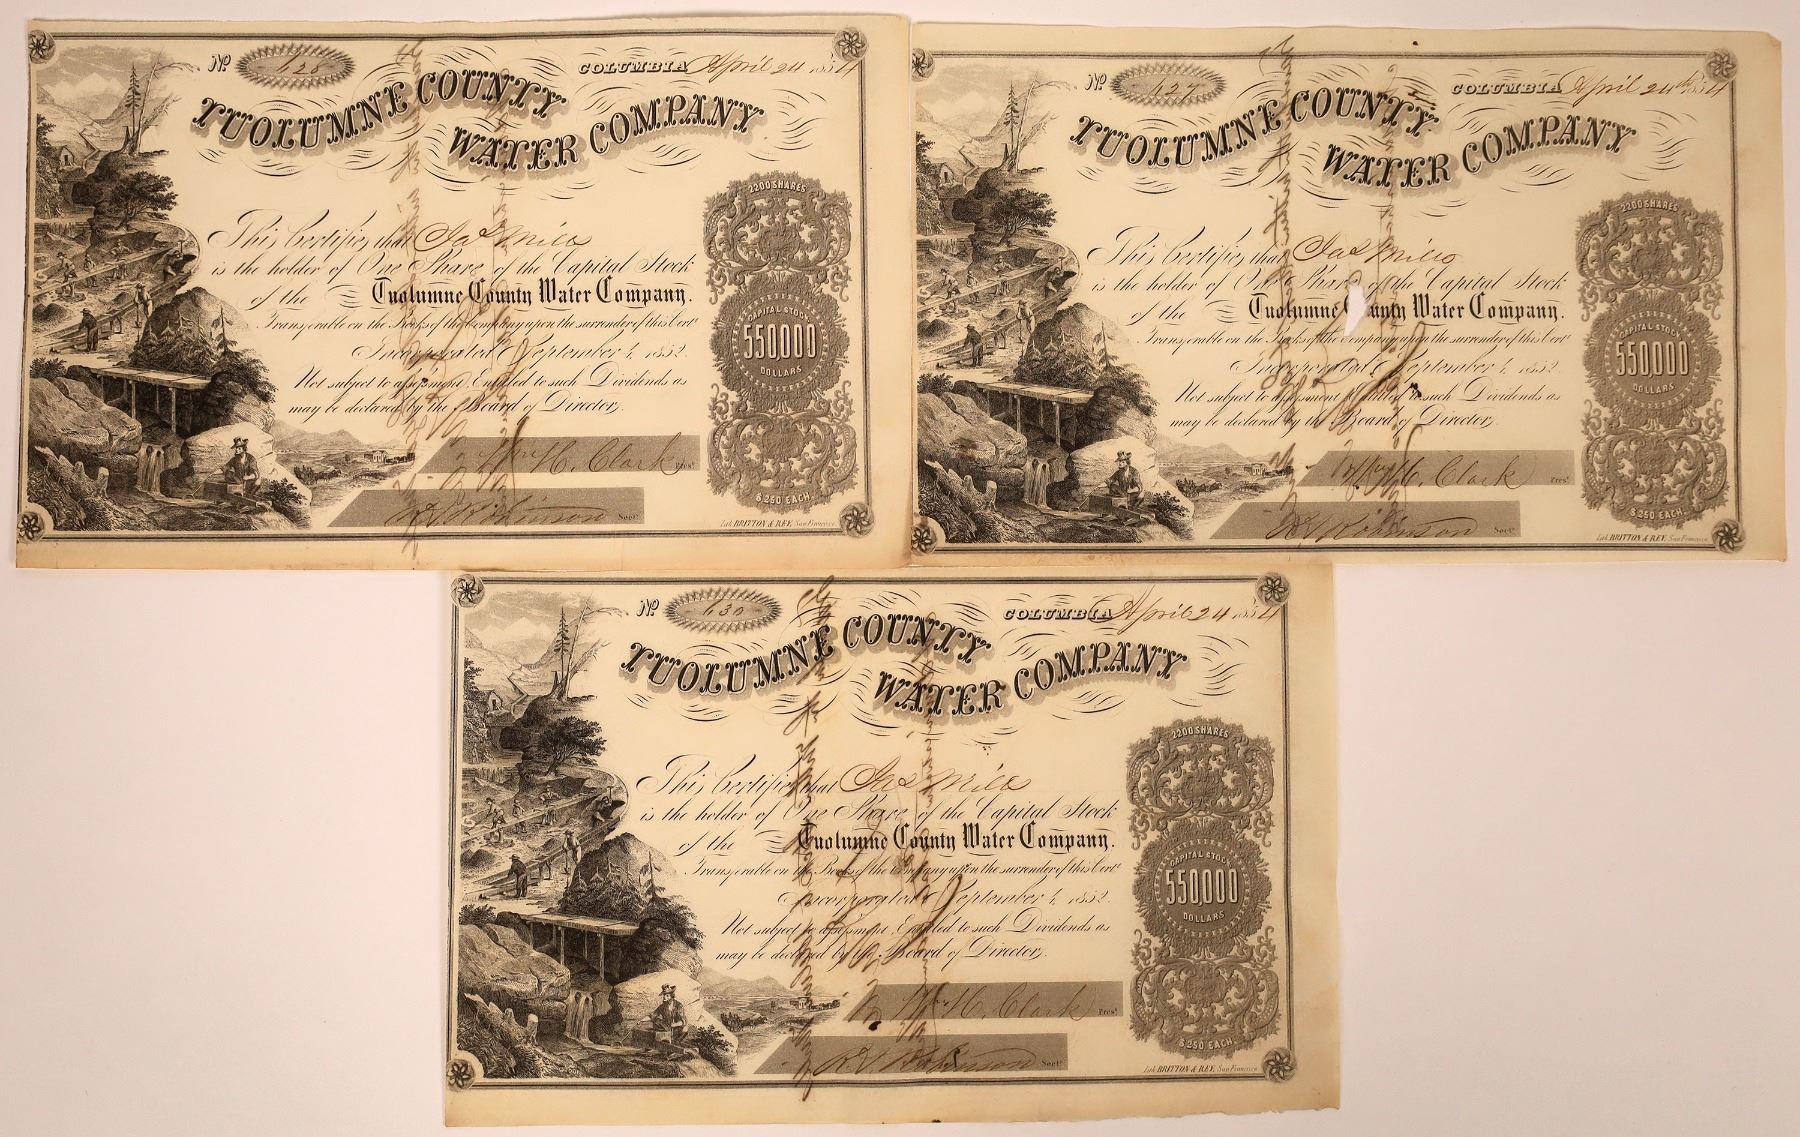 No 628 COLUMBIA April 24 1854
TUOLUMNE COUNTY
WATER COMPANY
This Certifies that Jas Mills
is the holder of One Share of the Capital Stock
of the Tuolumne County Water Company.
Transferable on the Books of the Company upon the surrender of this Certe
Incorporated September 1, 1852.
Not subject to assessment. Entitled to such Dividends as
may be declared by the Board of Directors.
Wm H. Clark Prest
Robinson Secty
2200 SHARES
CAPITAL STOCK
550,000
DOLLARS
$250 EACH.
Lith. BRITTON & REY, San Francisco.
No 627 COLUMBIA April 24th 1854
TUOLUMNE COUNTY
WATER COMPANY
This Certifies that Jas Mills
is the holder of One Share of the Capital Stock
of the Tuolumne County Water Company.
Transferable on the Books of the Company upon the surrender of this Certe
Incorporated September 1, 1852.
Not subject to assessment. Entitled to such Dividends as
may be declared by the Board of Directors.
Wm H. Clark Prest
Robinson Secty
2200 SHARES
CAPITAL STOCK
550,000
DOLLARS
$250 EACH.
Lith. BRITTON & REY, San Francisco.
No 630 COLUMBIA April 24 1854
TUOLUMNE COUNTY
WATER COMPANY
This Certifies that Jas Mills
is the holder of One Share of the Capital Stock
of the Tuolumne County Water Company.
Transferable on the Books of the Company upon the surrender of this Certe
Incorporated September 1, 1852.
Not subject to assessment. Entitled to such Dividends as
may be declared by the Board of Directors.
Wm H. Clark Prest
Robinson Secty
2200 SHARES
CAPITAL STOCK
550,000
DOLLARS
$250 EACH.
Lith. BRITTON & REY, San Francisco.